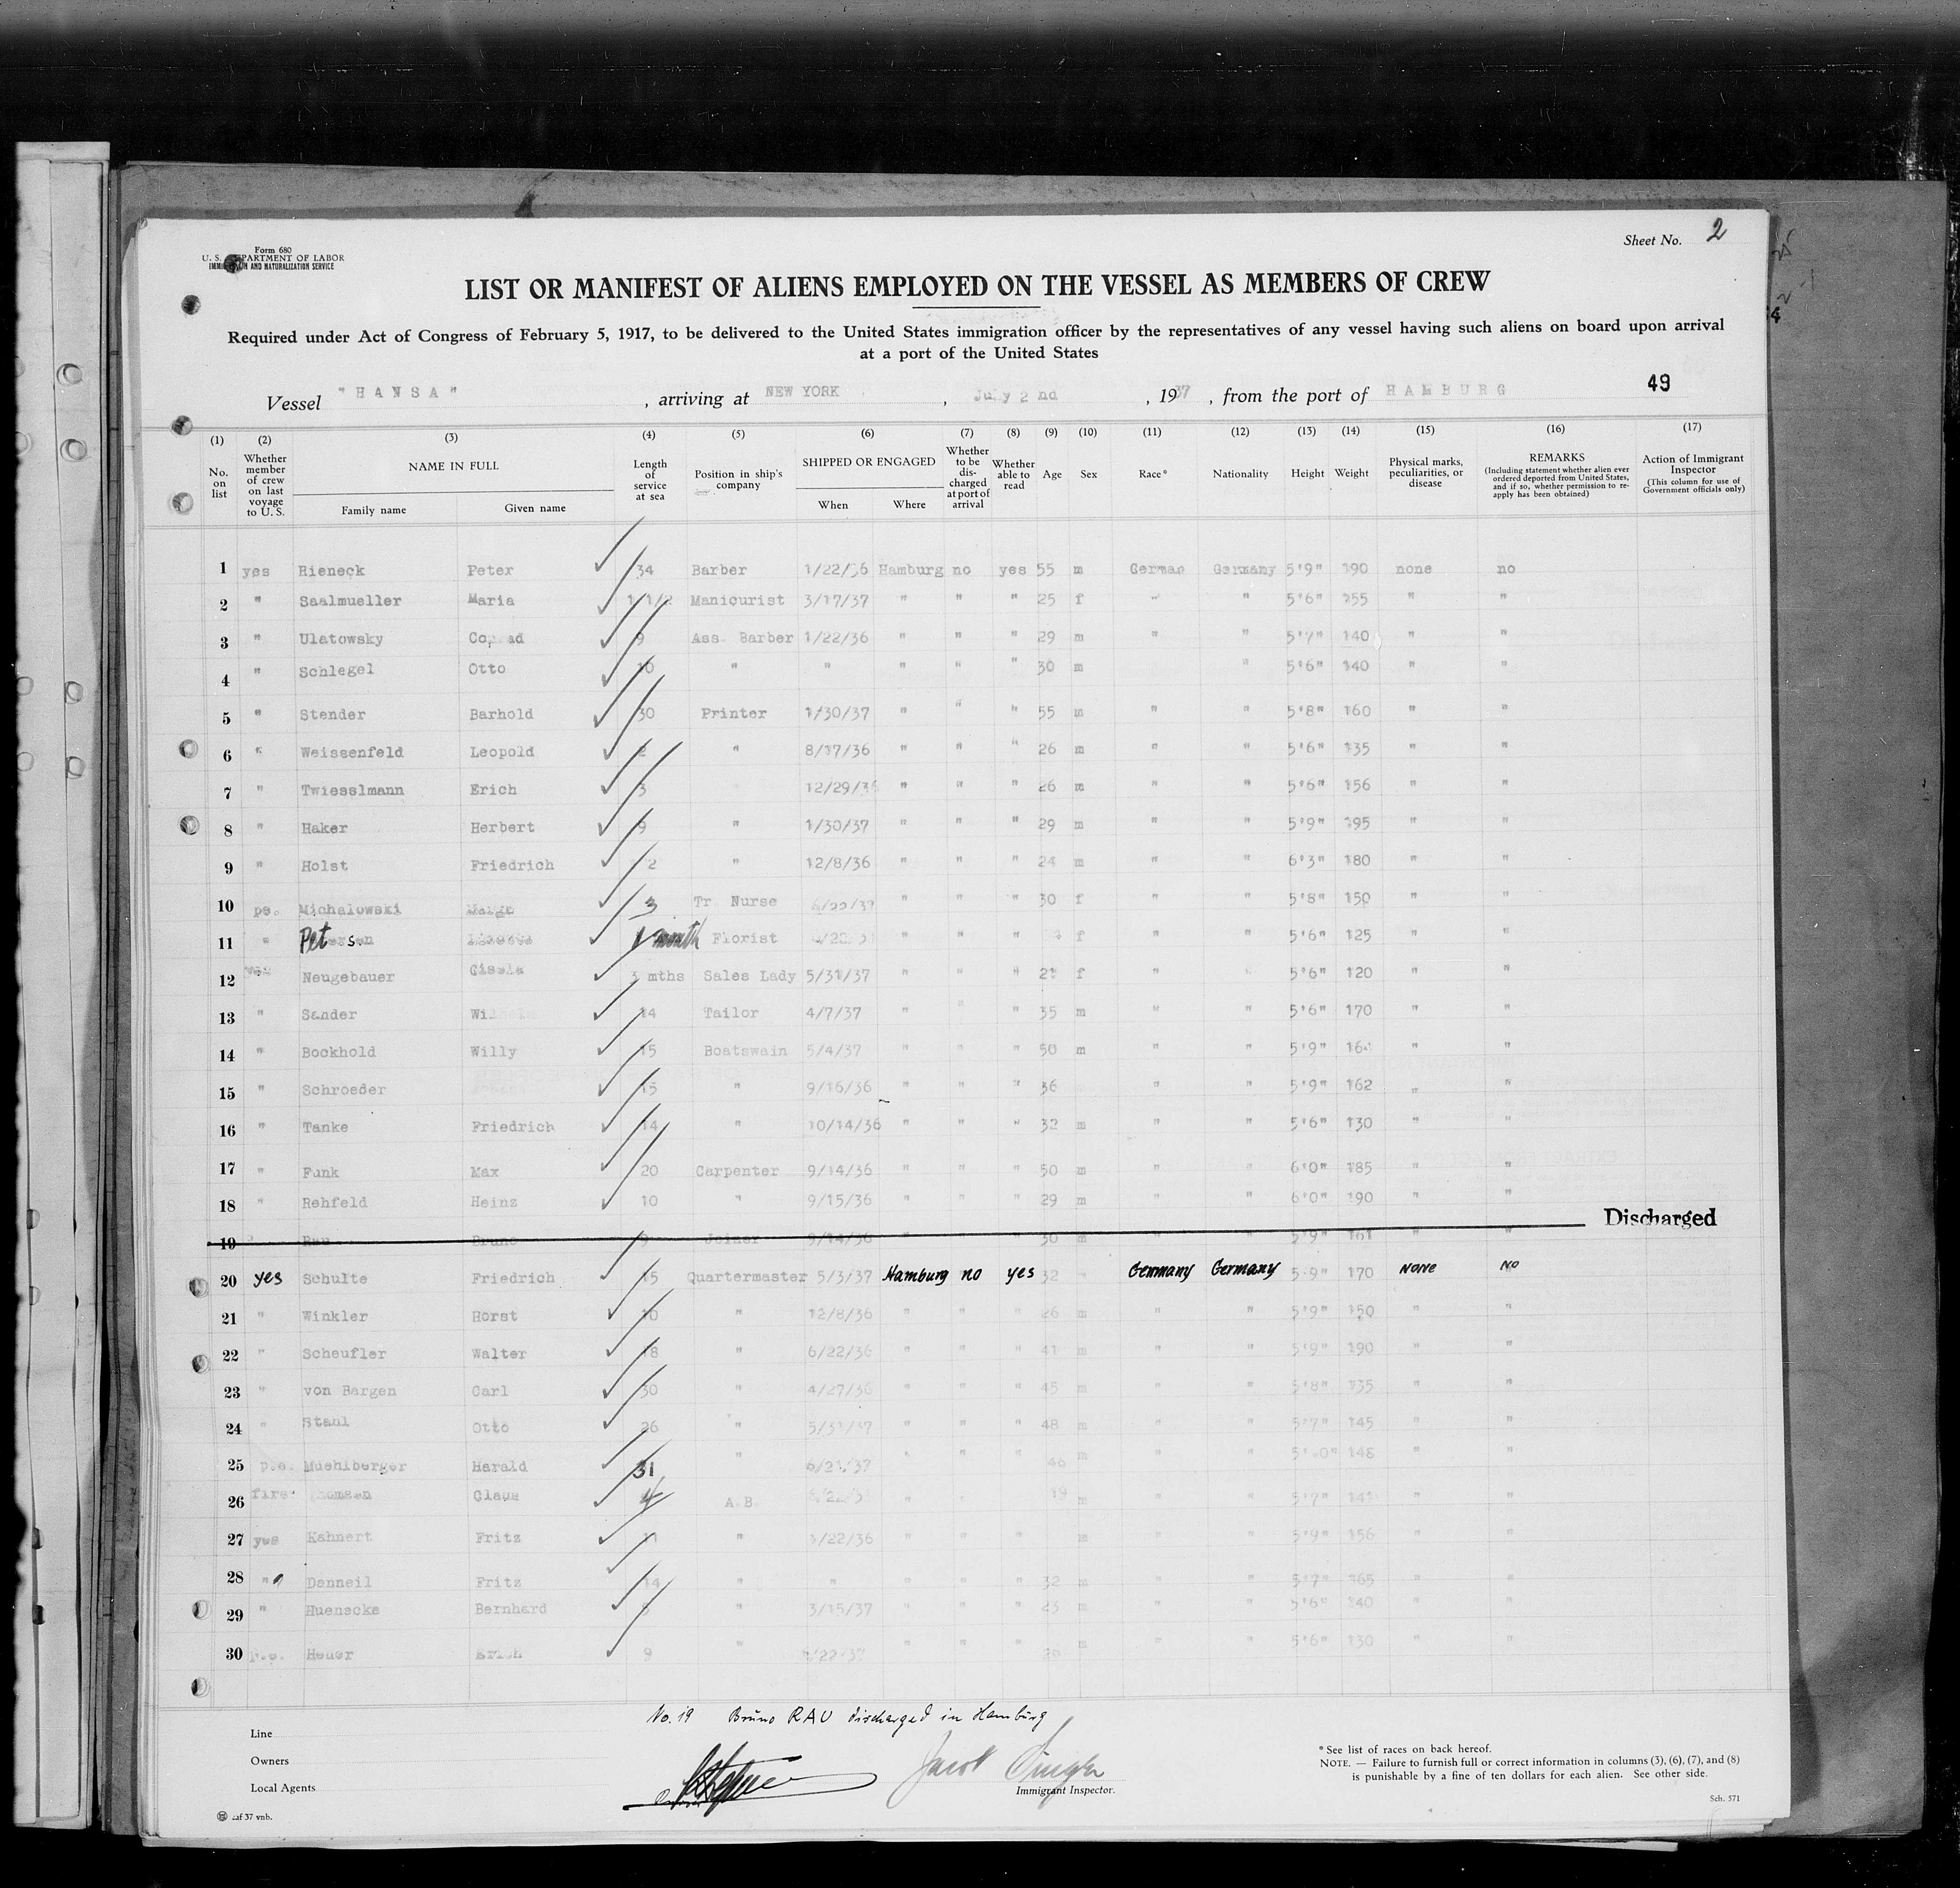 Form 680
U. S. DEPARTMENT OF LABOR
IMMIGRATION AND NATURALIZATION SERVICE
Sheet No. 2
LIST OR MANIFEST OF ALIENS EMPLOYED ON THE VESSEL AS MEMBERS OF CREW
Required under Act of Congress of February 5, 1917, to be delivered to the United States immigration officer by the representatives of any vessel having such aliens on board upon arrival
at a port of the United States
49
Vessel "HANSA" , arriving at NEW YORK , July 2nd , 1937 , from the port of HAMBURG
(1) (2) (3) (4) (5) (6) (7) (8) (9) (10) (11) (12) (13) (14) (15) (16) (17)
No. on list
Whether member of crew on last voyage to U. S.
NAME IN FULL
Family name
Given name
Length of service at sea
Position in ship's company
SHIPPED OR ENGAGED
When
Where
Whether to be discharged at port of arrival
Whether able to read
Age
Sex
Race*
Nationality
Height
Weight
Physical marks, peculiarities, or disease
REMARKS
(Including statement whether alien ever ordered deported from United States, and if so, whether permission to reapply has been obtained)
Action of Immigrant Inspector
(This column for use of Government officials only)
1 yes Rieneck Peter 34 Barber 1/22/36 Hamburg no yes 55 m German Germany 5'9" 190 none no
2 " Saalmueller Maria 1 1/2 Manicurist 3/17/37 " " " 25 f " " 5'6" 155 " "
3 " Ulatowsky 9 Ass. Barber 1/22/36 " " " 29 m " " 5'7" 140 " "
4 " Schlegel Otto 10 " " " " " 30 m " 5'6" 140 " "
5 " Stender Barhold 30 Printer 1/30/37 " " " 55 m " " 5'8" 160 " "
6 " Weissenfeld Leopold 2 " 8/17/36 " " " 26 m " " 5'6" 135 " "
7 " Twiesslmann Erich 3 12/29/36 " " " 26 m " " 5'6" 156 " "
8 " Haker Herbert 9 " 1/30/37 " " " 29 m " " 5'9" 195 " "
9 " Holst Friedrich 2 " 12/8/36 " " " 24 m " " 6'3" 180 " "
10 pe. Michalowski 3 Tr. Nurse 6/22/37 " " " 30 f " " 5'8" 150 " "
11 " Petersen 1 month Florist " " " f " " 5'6" 125 " "
12 Neugebauer Gisela 3 mths Sales Lady 5/31/37 " " " 21 f " " 5'6" 120 " "
13 " Sander 14 Tailor 4/7/37 " " " 35 m " " 5'6" 170 " "
14 " Bockhold Willy 15 Boatswain 5/4/37 " " " 50 m " " 5'9" " "
15 " Schroeder 15 " 9/16/36 " " " 36 " " 5'9" 162 " "
16 " Tanke Friedrich 14 " 10/14/36 " " " 32 m " " 5'6" 130 " "
17 " Funk Max 20 Carpenter 9/14/36 " " " 50 m " " 6'0" 185 " "
18 " Rehfeld Heinz 10 " 9/15/36 " " " 29 m " " 6'0" 190 " "
Discharged
19 Rau Bruno Joiner 9/14/36 " " " 30 m " " 5'9" 161 " "
20 yes Schulte Friedrich 15 Quartermaster 5/3/37 Hamburg no yes 32 Germany Germany 5'9" 170 none no
21 " Winkler Horst 10 " 12/8/36 " " " 26 m " " 5'9" 150 " "
22 " Scheufler Walter 18 " 6/22/36 " " " 41 m " " 5'9" 190 " "
23 " von Bargen Carl 30 " 4/27/36 " " " 45 m " " 5'8" 135 " "
24 " Stahl Otto 26 " 5/31/37 " " " 48 m " " 5'7" 145 " "
25 p.e. Muehlberger Harald 31 " " " " 46 m " " 148 " "
26 first Thomsen Claus 4 A.B. " " 19 m " " 5'7" " "
27 yes Kahnert Fritz 11 " 1/22/36 " " " m " " 5'9" 156 " "
28 " Danneil Fritz 14 " " " " " 32 m " " 5'7" 165 " "
29 " Huenecke Bernhard " 3/15/37 " " " 23 m " " 5'6" 140 " "
30 p.e. Heuer Erich 9 " " " " m " " 5'6" 130 " "
No. 19 Bruno RAU discharged in Hamburg
Line
Owners
Local Agents
Jacob
Immigrant Inspector.
* See list of races on back hereof.
NOTE. — Failure to furnish full or correct information in columns (3), (6), (7), and (8)
is punishable by a fine of ten dollars for each alien. See other side.
Sch. 571
37 vnb.